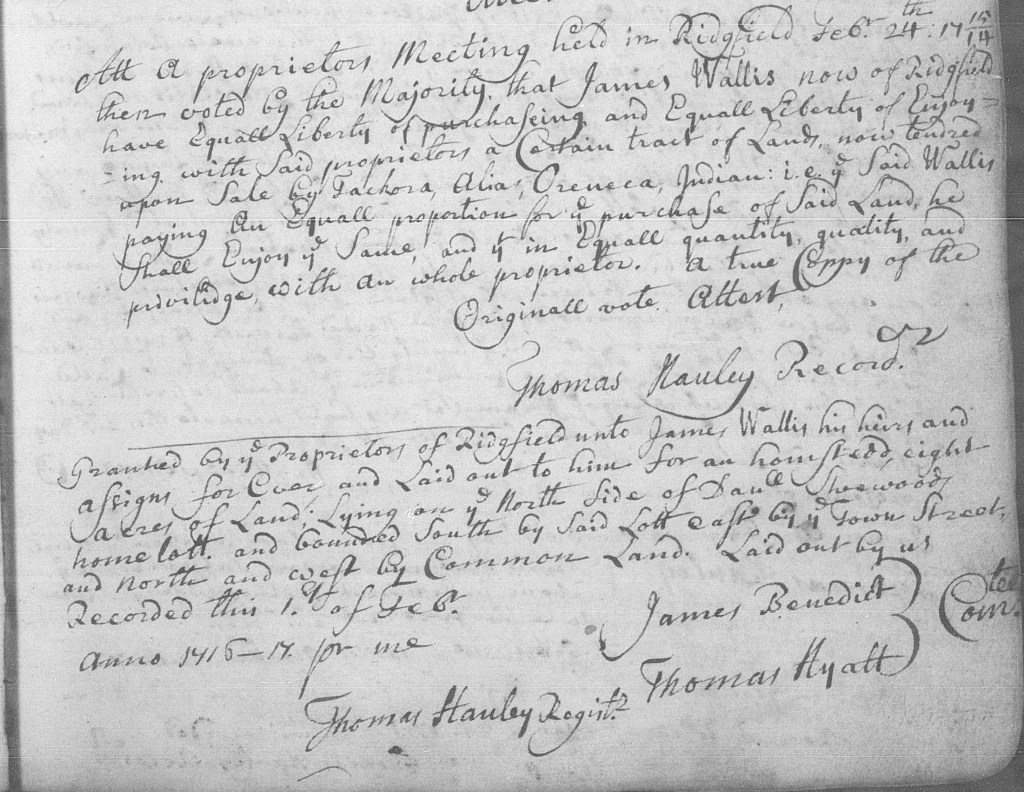 Att A proprietors Meeting held in Ridgfield Febr. 24th: 17 15/14
then voted by the Majority, that James Wallis now of Ridgfield
have Equall Liberty of purchaseing and Equall Liberty of Enjoy=
=ing with Said proprietors a Certain tract of Land, now tendred
upon Sale by Tackora, Alias, Oreneca, Indian: i.e. ye Said Wallis
paying An Equall proportion for ye purchase of Said Land, he
Shall Enjoy ye Same, and yt in Equall quantity, quality, and
priviledge, with an whole proprietor. A true Coppy of the
Originall vote. Attest,
Thomas Hauley Recordr.
Granted by ye Proprietors of Ridgfield unto James Wallis his heirs and
assigns for Ever and Laid out to him for an homsteed, eight
acres of Land; Lying on ye North Side of Daull Sherwoods
homelott. and bounded South by Said Lott east by ye Town Street,
and North and west by Common Land. Laid out by us
Recorded this 1.st of Febr.
James Benedict
Comtee.
Anno 1716-17. pr me
Thomas Hyatt
Thomas Hauley Registr.